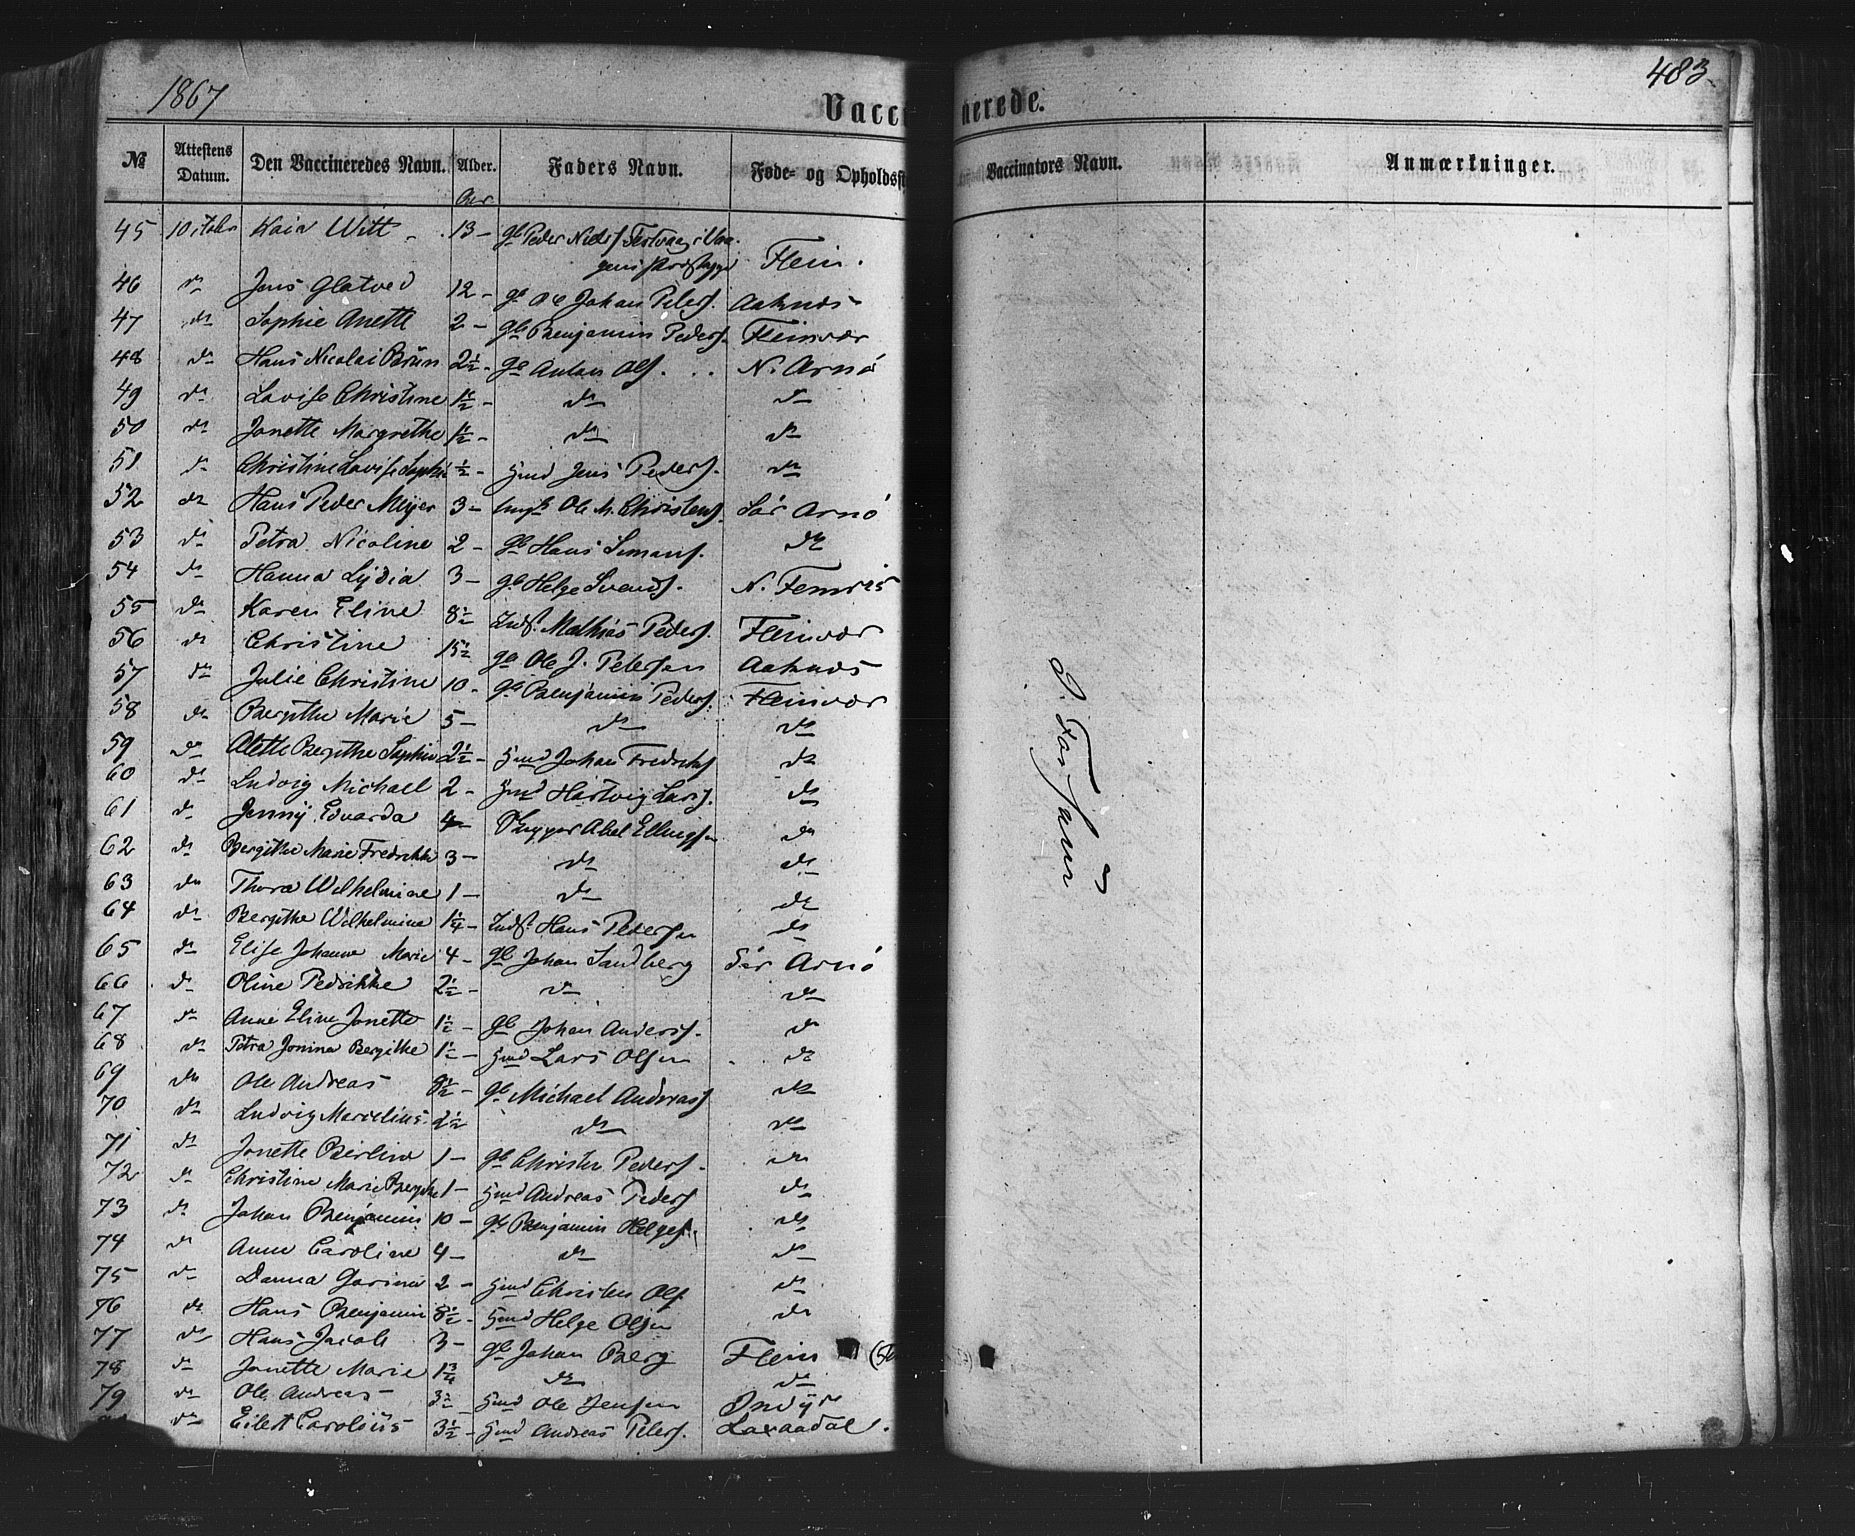 1867
Vacc
nerede.
483
№ Attestens Datum. Den Vaccineredes Navn. Alder. Faders Navn. Føde- og Opholdsst
Vaccinators Navn. Anmærkninger.
Aar
45 10 Witt 13 - gb Peder Flein.
46 do Jens Glatved 12 - gb Ole Johan Peters. Aaknæs
47 do Sophie Anette 2 - gb Benjamin Peders. Fleinvær
48 do Hans Nicolai Brün 2½ - gb Anton Ols. N. Arnö
49 do Lovise Christine 1½ - do do
50 do Jonette Margrethe 1½ - do do
51 do Christine Lovise Sophie ½ - Hmd Jens Peders. do
52 do Hans Peder Meÿer 3 - Ole M. Christens. Sör Arnö
53 do Petra Nicoline 2 - gb Hans Simons. do
54 do Hanna Lÿdia 3 - gb Helge Svends. N. Femris
55 do Karen Eline 8½ Inds. Mathias Peders. Fleinvær
56 do Christine 15½ gb Ole J. Petersen Aaknæs
57 do Julie Christine 10 - gb Benjamin Peders. Fleinvær
58 do Bergithe Marie 5 - do do
59 do Alette Bergithe Sophie 2½ - Hmd Johan Fredriks do
60 do Ludvig Michael 2 - Hmd Hartvig Lars. do
61 do Jennÿ Edvarda 4 Abel Ellingsen do
62 do Bergithe Marie Fredrikke 3 - do do
63 do Thora Wilhelmine 1 - do do
64 do Bergithe Wilhelmine 1¼ - Inds. Hans Pedersen do
65 do Elise Johanne Marie 4 - gb Johan Sandberg Sör Arnö
66 do Oline Pedrikke 2½ - do do
67 do Anne Eline Jonette 1½ - gb Johan Anders. do
68 do Petra Jonina Bergithe 1½ - Hmd Lars Olsen do
69 do Ole Andreas 8½ - gb Michael Andreas do
70 do Ludvig Marelius 2½ do do
71 do Jonette Berline 1 - gb Christen Peders. do
72 do Christine Marie Bergithe 1 - Hmd Andreas Peders do
73 do Johan Benjamin 10 - gb Benjamin Helges. do
74 do Anne Caroline 4 - do do
75 do Danna Garina 2 - Hmd Christen Ols do
76 do Hans Benjamin 8½ - Hmd Helge Olsen do
77 do Hans Jacob 3 - gb Johan Berg Flein
78 do Jonette Marie 1¾ do do
79 do Ole Andreas 3½ - Hmd Ole Jensen Indÿr
do Eilert Carolius 3½ - Hmd Andreas Peters. Laxaadal.